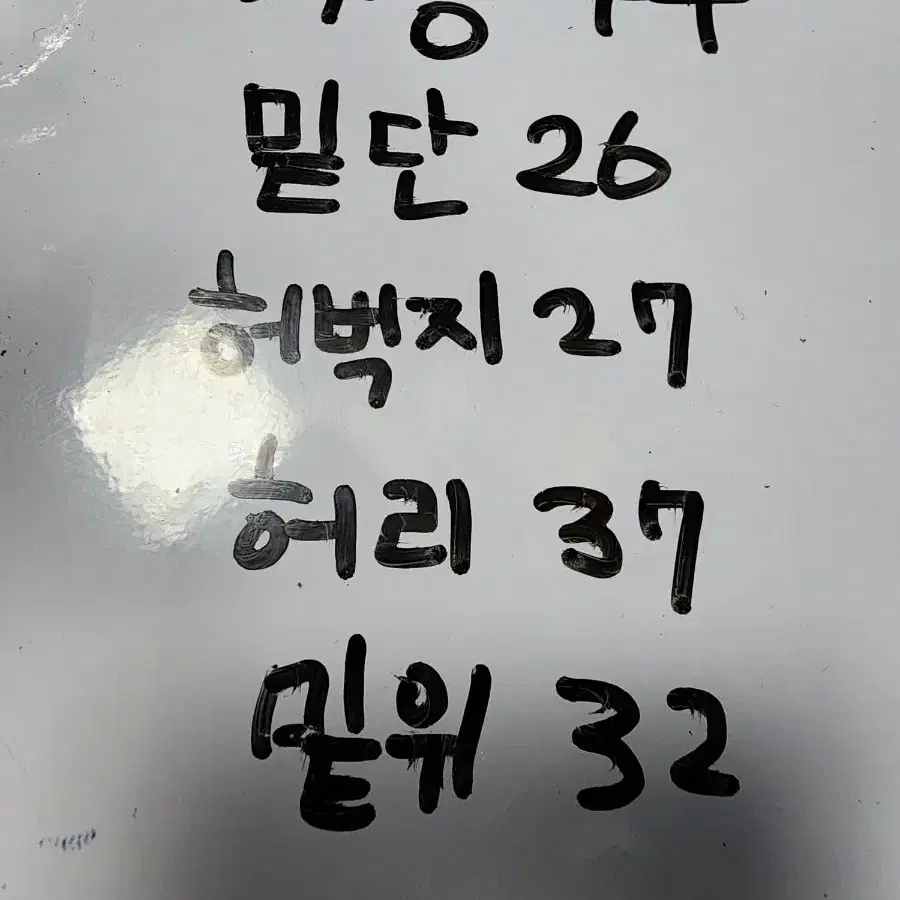 밑단 26
허벅지 27
허리 37
밑위 32